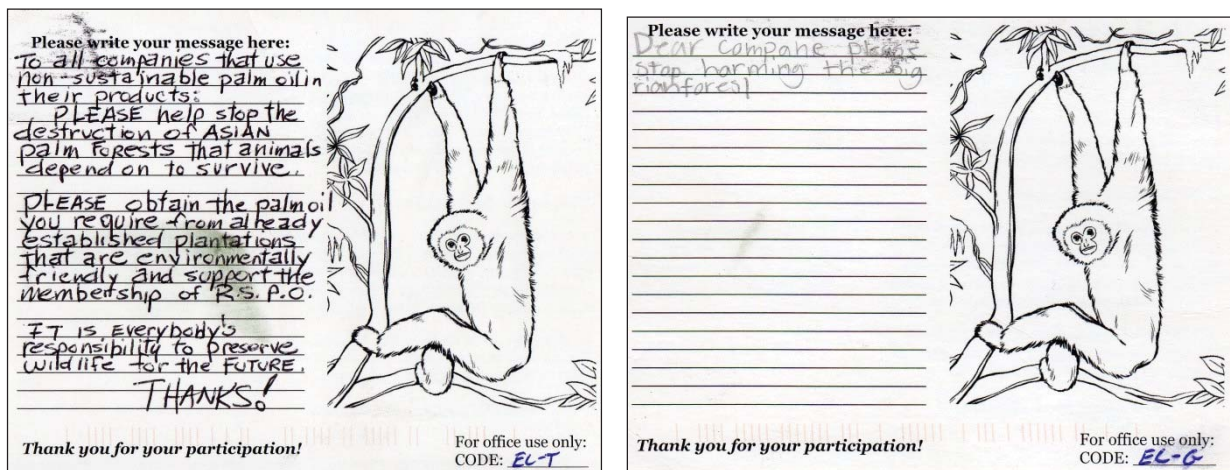 Please write your message here:
To all companies that use
non-sustainable palm oil in
their products:
PLEASE help stop the
destruction of ASIAN
palm Forests that animals
depend on to survive.
PLEASE obtain the palm oil
you require from already
established plantations
that are environmentally
friendly and support the
membership of R.S.P.O.
IT is Everybody's
responsibility to preserve
wildlife for the FUTURE.
THANKS!
Thank you for your participation!
For office use only:
CODE: EL-T
Please write your message here:
Dear compane
stop harming the big
rianforest
Thank you for your participation!
For office use only:
CODE: EL-G